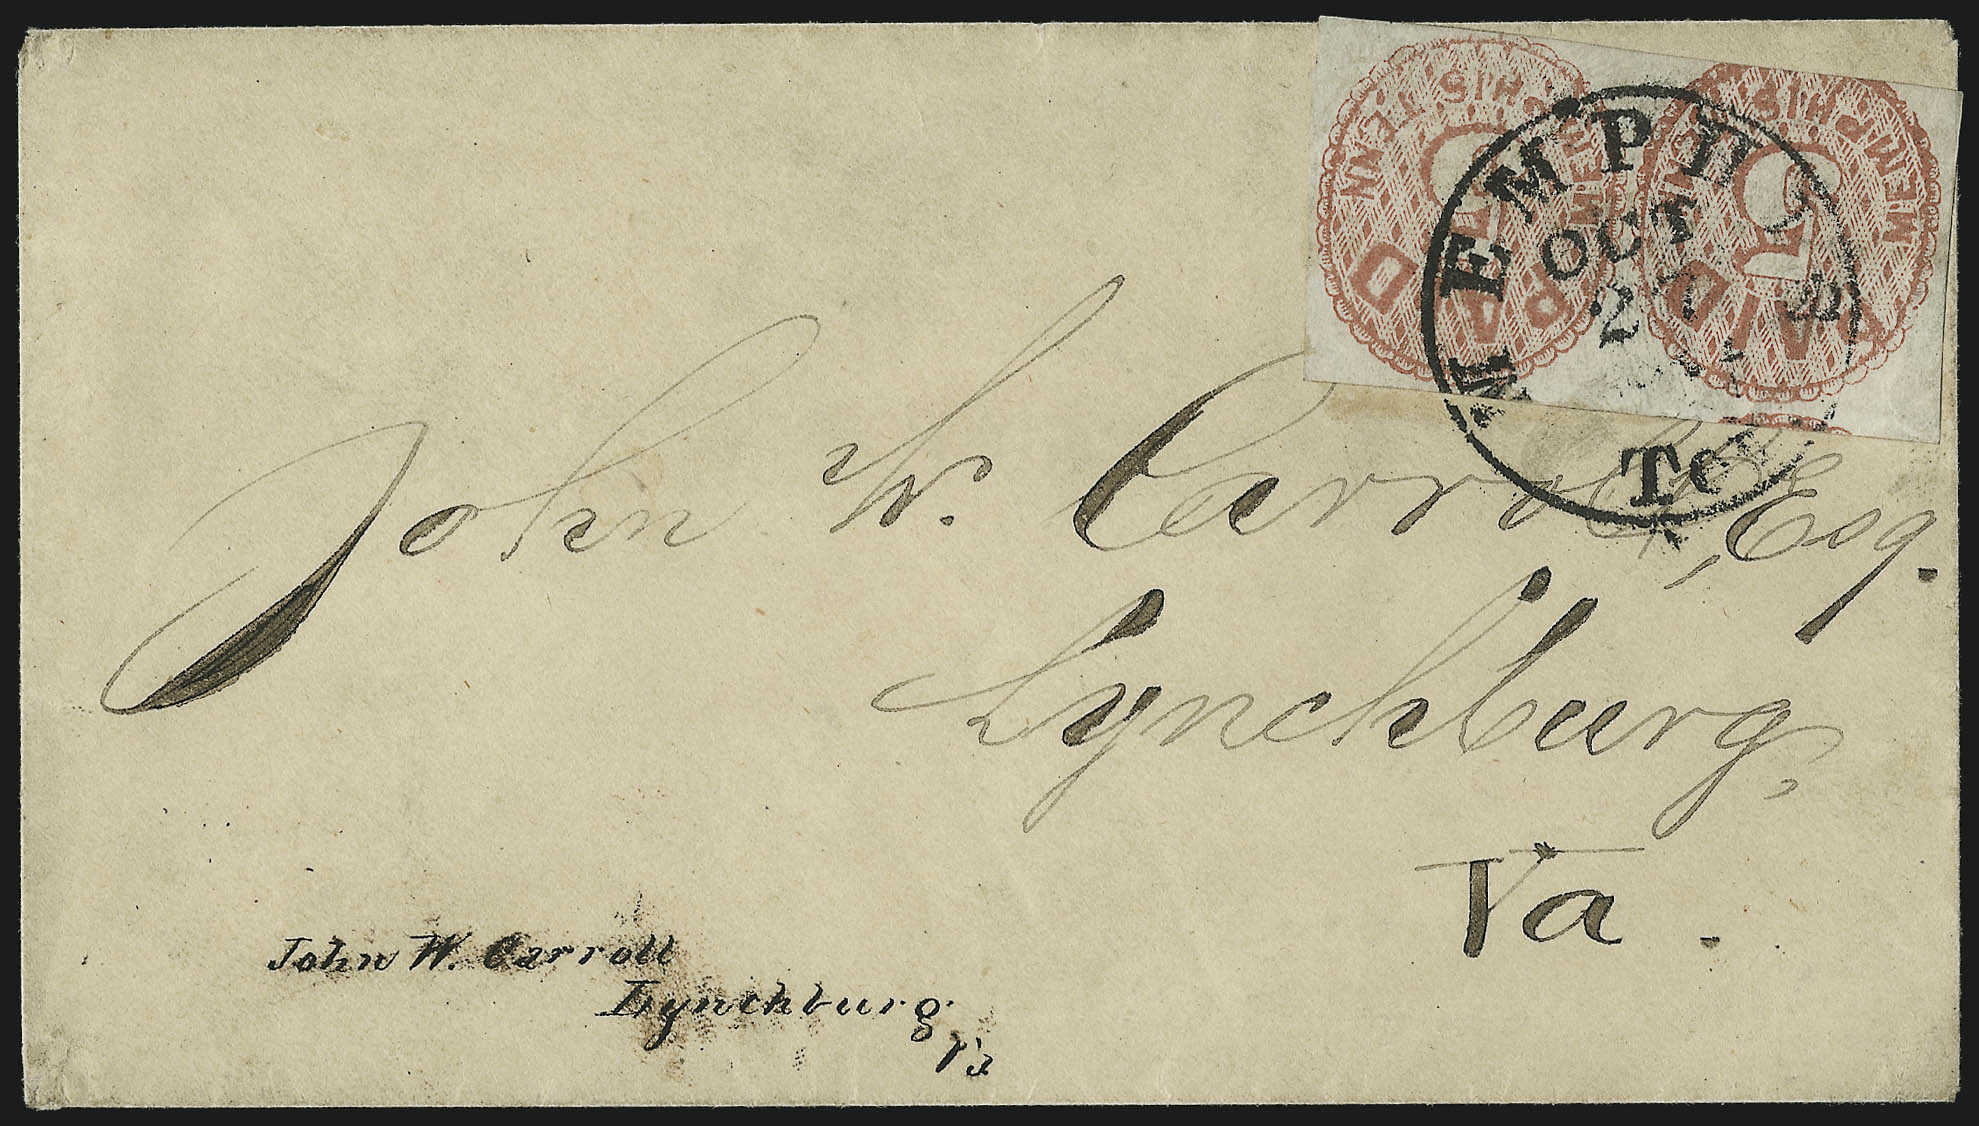 MEMPHIS TENN
5
PAID
MEMPHIS TENN
5
PAID
MEMPHIS
OCT
2
Te
John W. Carroll, Esq.
Lynchburg,
Va.
John W. Carroll
Lynchburg
Va